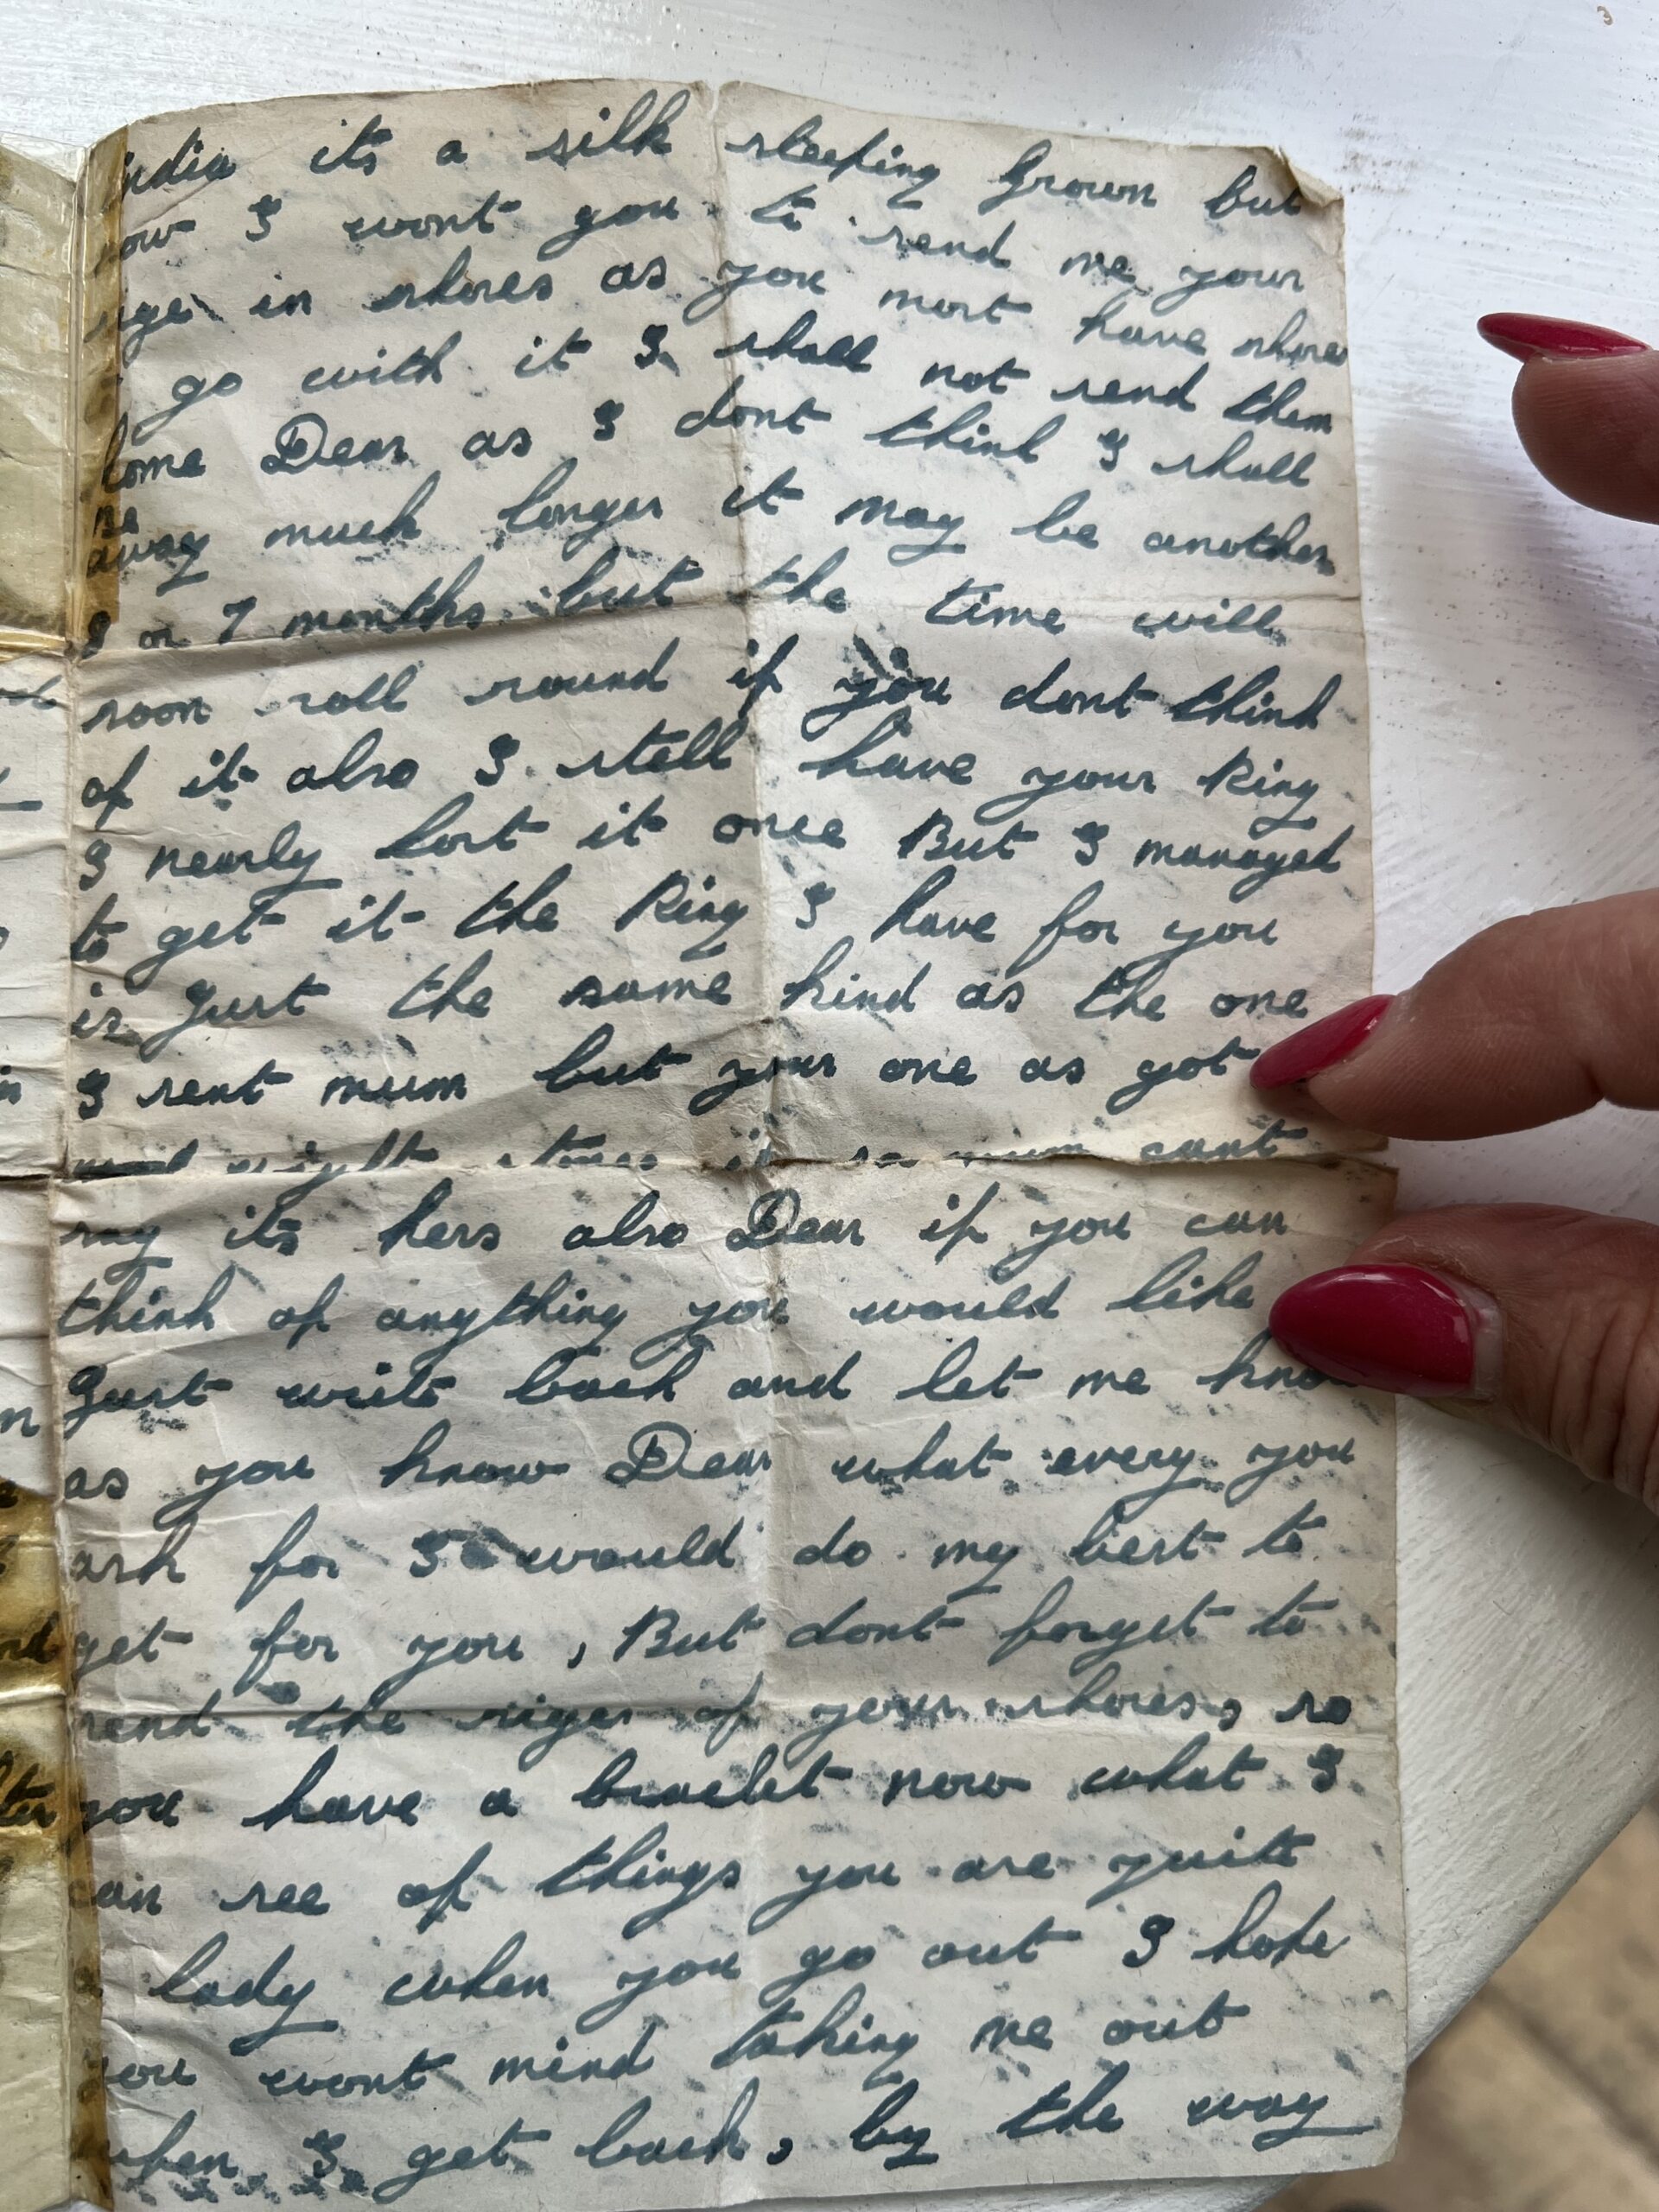 india its a silk sleeping Grown but
now I wont you to send me your
sige in shoes as you most have shoes
go with it I shall not send them
home Dear as I dont think I shall
be
away much longer it may be another
or 7 months but the time will
soon roll round if you dont think
of it also I still have your Ring
I nearly lost it once But I managed
to get it the Ring I have for you
is Just the same kind as the one
I sent mum but your one as got
stones in so mum cant
say its hers also Dear if you can
think of anything you would like
Just write back and let me know
as you know Dear what every you
ask for I would do my best to
get for you, But dont forget to
send the siger of your shoes, so
you have a braclet now what I
can see of things you are quite
a lady when you go out I hope
you wont mind taking me out
when I get back, by the way